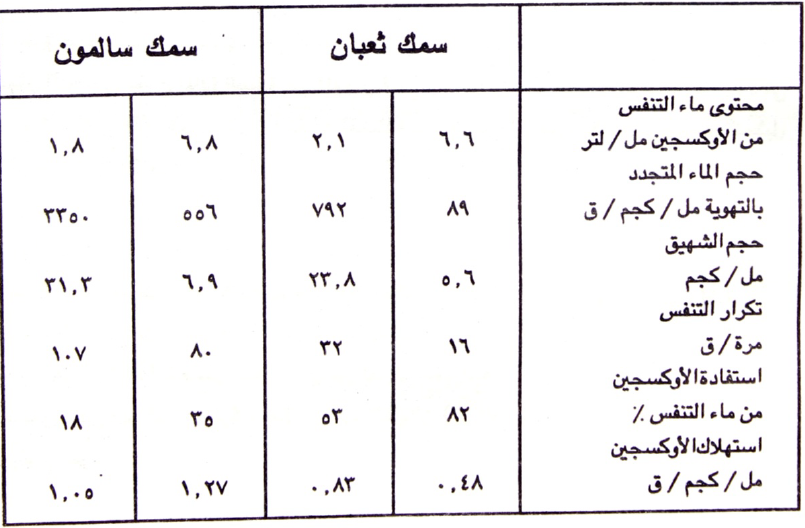 سمك ثعبان سمك سالمون
محتوى ماء التنفس
من الأوكسجين مل / لتر ٦,٦ ٢,١ ٦,٨ ١,٨
حجم الماء المتجدد
بالتهوية مل / كجم / ق ٨٩ ٧٩٢ ٥٥٦ ٣٣٥٠
حجم الشهيق
مل / كجم ٥,٦ ٢٣,٨ ٦,٩ ٣١,٣
تكرار التنفس
مرة / ق ١٦ ٣٢ ٨٠ ١٠٧
استفادة الأوكسجين
من ماء التنفس ٪ ٨٢ ٥٣ ٣٥ ١٨
استهلاك الأوكسجين
مل / كجم / ق ٠,٤٨ ٠,٨٣ ١,٢٧ ١,٠٥